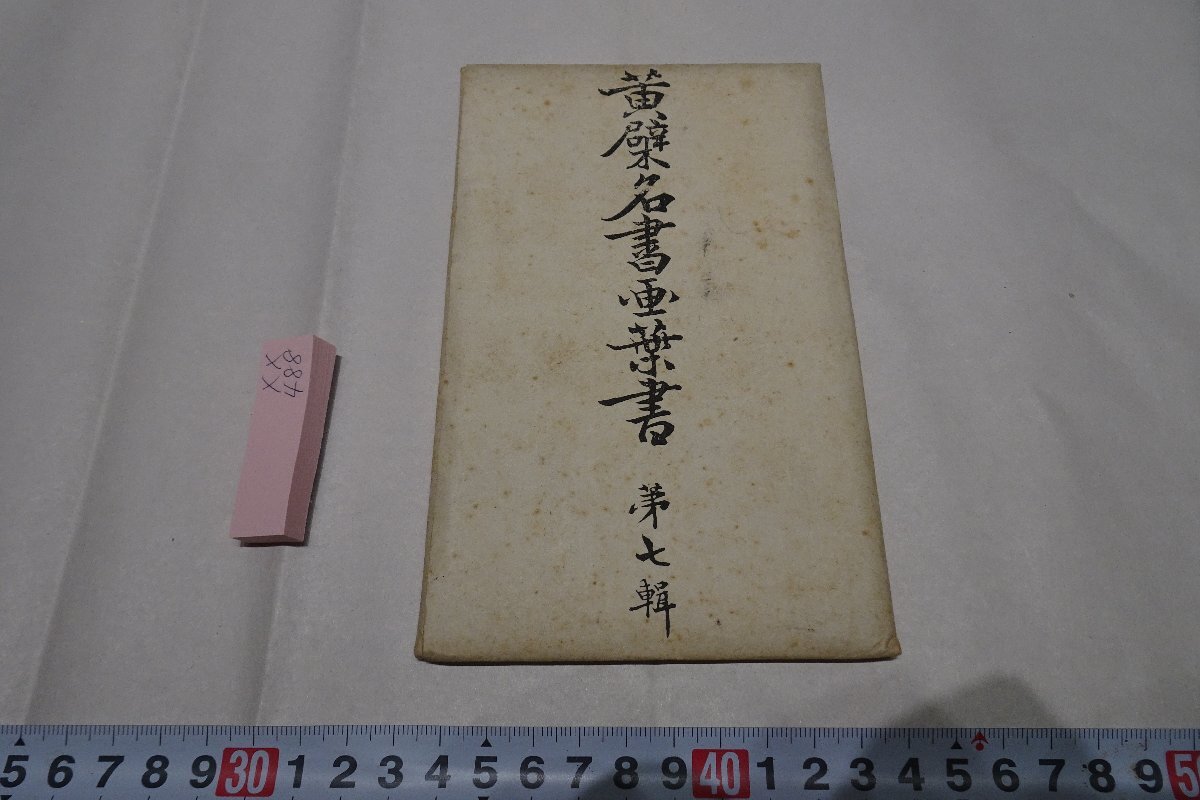 黄檗名書画葉書
第七輯
488
XX
5 6 7 8 9 30 1 2 3 4 5 6 7 8 9 40 1 2 3 4 5 6 7 8 9 50